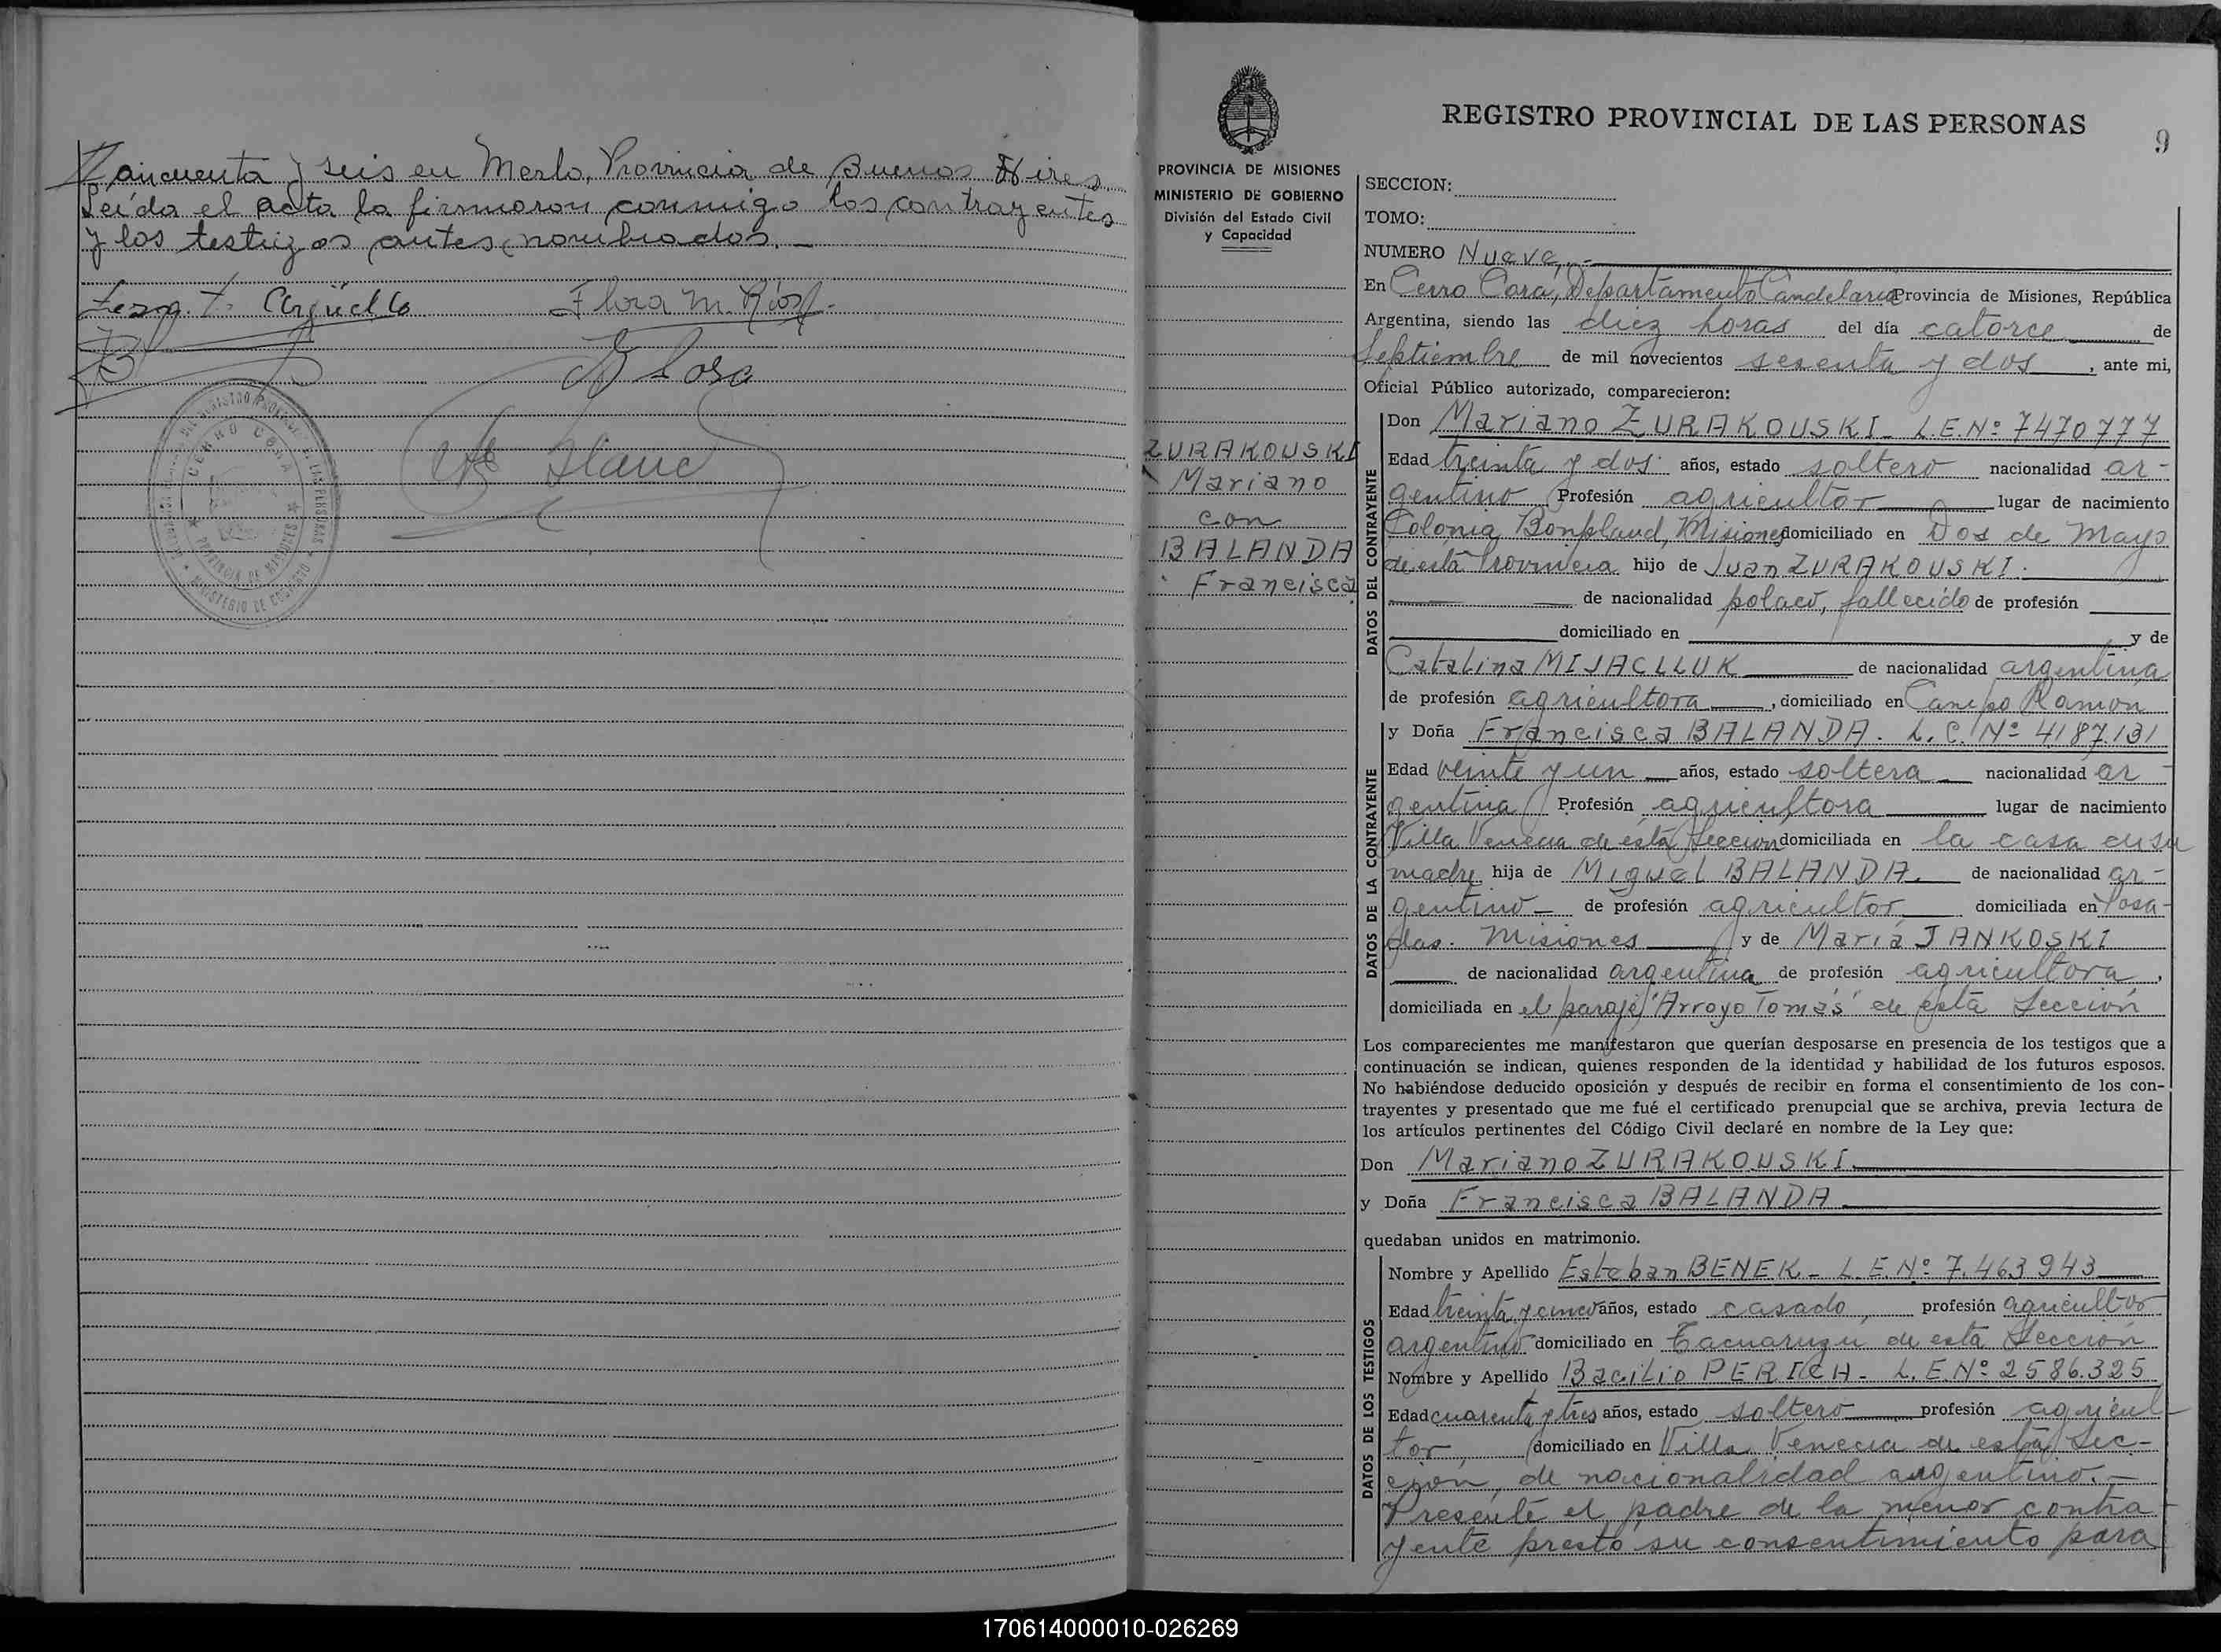 cincuenta y seis en Merlo, Provincia de Buenos Aires
Leída el acta la firmaron conmigo los contrayentes
y los testigos antes nombrados.-
Argüello
Flora M. Ríos
CERRO CORÁ
PROVINCIA DE MISIONES
PROVINCIA DE MISIONES
MINISTERIO DE GOBIERNO
División del Estado Civil
y Capacidad
ZURAKOUSKI
Mariano
con
BALANDA
Francisca
REGISTRO PROVINCIAL DE LAS PERSONAS
9
SECCION:
TOMO:
NUMERO Nueve.-
En Cerro Corá, Departamento Candelaria Provincia de Misiones, República
Argentina, siendo las diez horas del día catorce de
Septiembre de mil novecientos sesenta y dos, ante mi,
Oficial Público autorizado, comparecieron:
DATOS DEL CONTRAYENTE
Don Mariano ZURAKOUSKI_ L.E.Nº 7470777
Edad treinta y dos años, estado soltero nacionalidad ar-
gentino Profesión agricultor lugar de nacimiento
Colonia Bonpland, Misiones domiciliado en Dos de Mayo
de esta Provincia hijo de Juan ZURAKOUSKI.
de nacionalidad polaco, fallecido de profesión
domiciliado en y de
Catalina MIJACLLUK de nacionalidad argentina
de profesión agricultora, domiciliado en Campo Ramon
DATOS DE LA CONTRAYENTE
y Doña Francisca BALANDA. L.C. Nº 4187.131
Edad veinte y un años, estado soltera nacionalidad ar-
gentina Profesión agricultora lugar de nacimiento
Villa Venecia de esta Seccion domiciliada en la casa de su
madre hija de Miguel BALANDA. de nacionalidad ar-
gentino de profesión agricultor domiciliada en Posa-
das. Misiones y de María JANKOSKI
de nacionalidad argentina de profesión agricultora,
domiciliada en el paraje "Arroyo Tomás" de esta Sección
Los comparecientes me manifestaron que querían desposarse en presencia de los testigos que a
continuación se indican, quienes responden de la identidad y habilidad de los futuros esposos.
No habiéndose deducido oposición y después de recibir en forma el consentimiento de los con-
trayentes y presentado que me fué el certificado prenupcial que se archiva, previa lectura de
los artículos pertinentes del Código Civil declaré en nombre de la Ley que:
Don Mariano ZURAKOUSKI.
y Doña Francisca BALANDA
quedaban unidos en matrimonio.
DATOS DE LOS TESTIGOS
Nombre y Apellido Esteban BENEK_ L.E.Nº 7.463943
Edad treinta y cinco años, estado casado, profesión agricultor
argentino domiciliado en Tacuaruzú de esta Sección
Nombre y Apellido Bacilio PERICH_ L.E.Nº 2586.325
Edad cuarenta y tres años, estado soltero profesión agricul-
tor domiciliado en Villa Venecia de esta Sec-
ción, de nacionalidad argentino.-
Presente el padre de la menor contra-
yente prestó su consentimiento para
170614000010-026269